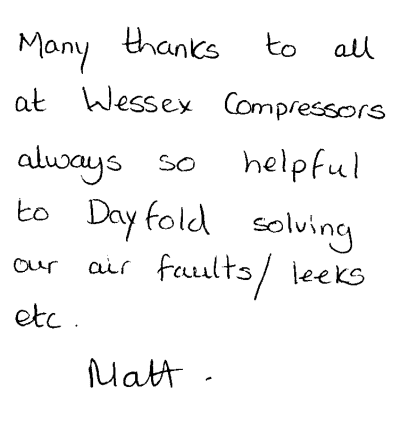 Many thanks to all
at Wessex Compressors
always so helpful
to Dayfold solving
our air faults/leeks
etc.
Matt.